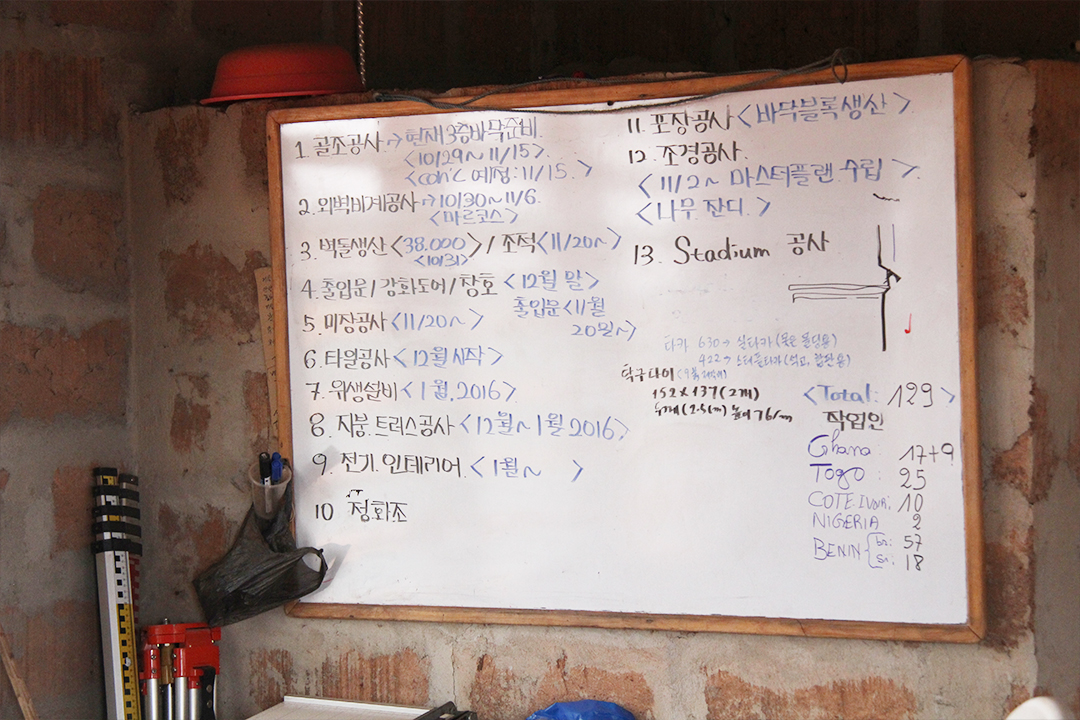 1. 골조공사 → 현재 3층바닥준비.
<10/29 ~ 11/15>.
<con'c 예정: 11/15. >
2. 외벽비계공사 → 10/30 ~ 11/6.
<마르코스>
3. 벽돌생산 <38.000> / 조적 <11/20~>
<10/31>
4. 출입문 / 강화도어 / 창호 <12월 말>
출입문 <11월
20일~>
5. 미장공사 <11/20~ >
6. 타일공사 <12월 시작>
7. 위생설비 <1월, 2016>
8. 지붕.트러스공사 <12월~1월 2016>
9. 전기.인테리어. <1월~ >
10 정화조
11. 포장공사 <바닥블록생산 >
12. 조경공사.
<11/2 ~ 마스터플랜 수립 >.
<나무 잔디. >
13. Stadium 공사
타카 630 → 실타카 (몰딩용)
422 →
탁구다이
152 x 137 (2개)
두께 (2.5cm) 높이 76/m
<Total: 129 >
작업인
Ghana 17+9
Togo : 25
COTE IVOIR: 10
NIGERIA 2
BENIN { br: 57
Sn: 18